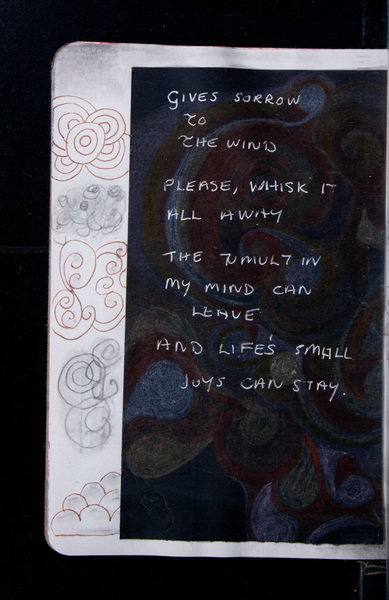 GIVES SORROW
TO
THE WIND
PLEASE, WHISK IT
ALL AWAY
THE TUMULT IN
MY MIND CAN
LEAVE
AND LIFE'S SMALL
JOYS CAN STAY.